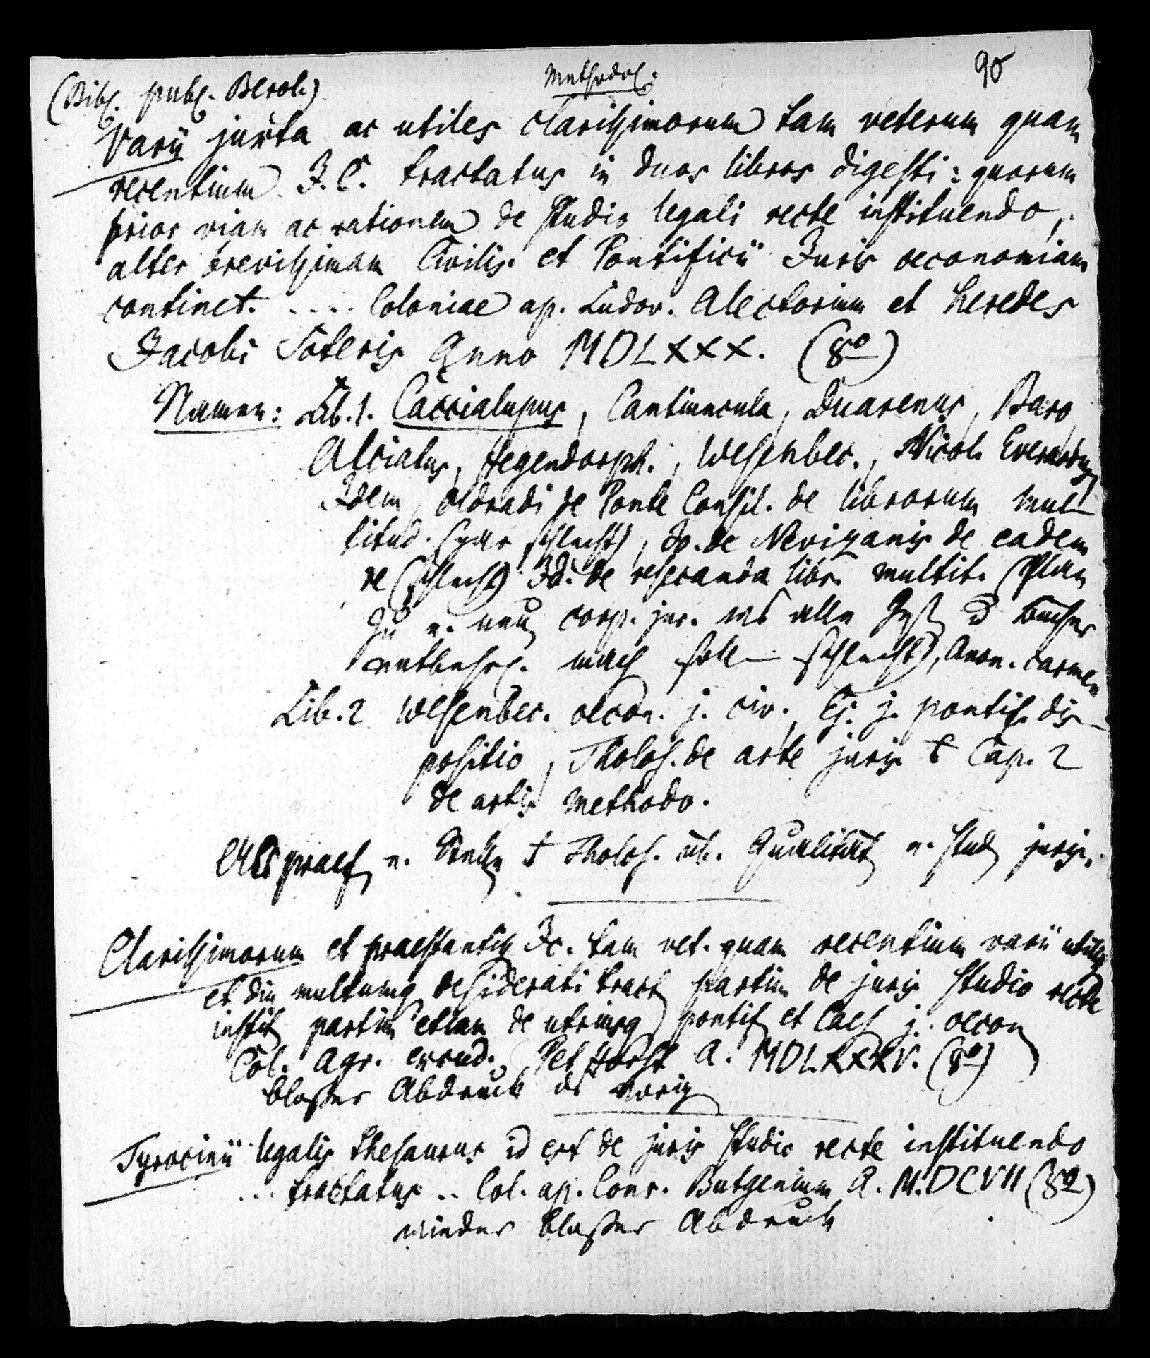 90
(Bibl. publ. Berol.) Methodol.
Varii juxta ac utiles clarissimorum tam veterum quam
recentium J. C. tractatus in duos libros digesti: quorum
prior viam ac rationem de studio legali recte instituendo,
alter brevissimam Civilis et Pontificii Juris oeconomiam
continet. .... Coloniae ap. Ludov. Alectorium et heredes
Jacobi Soteris Anno MDLXXX. (8º)
Namen: Lib. 1. Caccialupus, Cantiuncula, Duarenus, Baro,
Alciatus, Hegendorph., Wesenbec., Nicol. Everardus,
Idem, Oldradi de Ponte Consil. de librorum mul-
titud. (gar schlecht), Jo. de Nevizanis de eadem
re (schlecht) Id. de reseranda libr. multit. (Plan
zu e. neuen corp. jur. alle
machen soll — schlecht), Anon. carmen
Lib. 2 Wesenbec. oecon. j. civ., Ej. j. pontif. dis-
positio, Tholos. de arte juris Cap. 2
de artis methodo.
praef. e. Stelle Tholos. üb. Qualität e. stud. juris.
Clarissimorum et praestantiss. Jc. tam vet. quam recentium varii utiles
et diu multumq desiderati tract. partim de juris studio recte
instit. partim etiam de utriusq pontif. et Caes. j. oecon.
Col. Agr. excud. Pet. Horst A. MDLXXXV. (8º)
blosser Abdruck ds vorig.
Tyrocinii legalis thesaurus id est de juris studio recte instituendo
... tractatus .. Col. ap. Conr. Butgenium A. M.DCVII (8º)
wieder blosser Abdruck